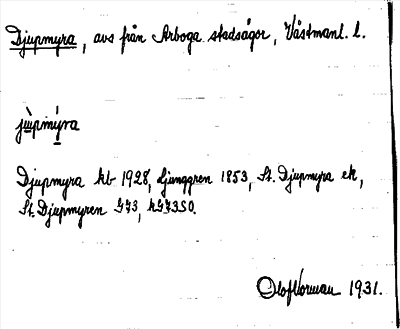 Djupmyra, avs från Arboga stadsägor, Västmanl. l.
jùpmýra
Djupmyra kb 1928, Ljunggren 1853, St. Djupmyra ek,
St. Djupmyren G73, hG73SO.
Olof Norman 1931.